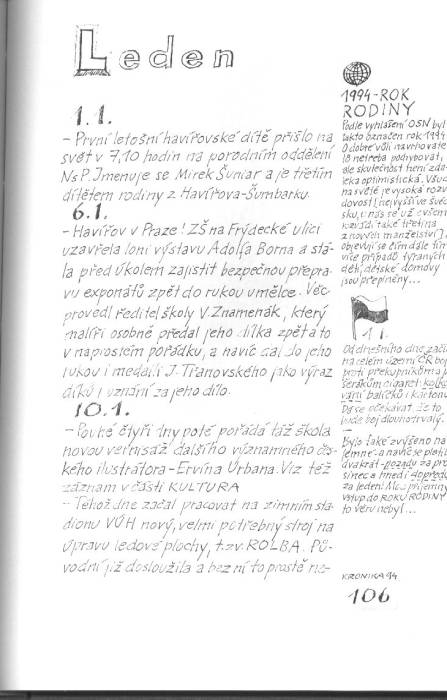 Leden
1.1.
- První letošní havířovské dítě přišlo na
svět v 7,10 hodin na porodním oddělení
NsP. Jmenuje se Mirek Šuniar a je třetím
dítětem rodiny z Havířova-Šumbarku.
6.1.
- Havířov v Praze! ZŠ na Frýdecké ulici
uzavřela loni výstavu Adolfa Borna a stá-
la před úkolem zajistit bezpečnou přepra-
vu exponátů zpět do rukou umělce. Věc
provedl ředitel školy V. Znamenák, který
malíři osobně předal jeho dílka zpět a to
v naprostém pořádku, a navíc dal do jeho
rukou i medaili J. Třanovského jako výraz
díků i uznání za jeho dílo.
10.1.
- Pouhé čtyři dny poté pořádá táž škola
novou vernisáž dalšího významného čes-
kého ilustrátora - Ervína Urbana. Viz též
záznam v části KULTURA
- Téhož dne začal pracovat na zimním sta-
dionu VÚH nový, velmi potřebný stroj na
úpravu ledové plochy, t.zv. ROLBA. Pů-
vodní již dosloužila a bez ní to prostě ne-
1994-ROK
RODINY
Podle vyhlášení OSN byl
takto označen rok 1994
O dobré vůli navrhovate
lů netřeba pochybovat,
ale skutečnost není zda-
leka optimistická. Všud
na světě je vysoká rozv
dovost! nejvyšší ve Švéd
sku, u nás se už
také třetina
z nových manželství),
objevují se čím dále tím
více případů týraných
dětí, dětské domovy
jsou přeplněny...
1.1.
Od dnešního dne začí
na celém území ČR boj
proti překupníkům a p
šerákům cigaret: kolko
vání balíčků i kartonů
Dá se očekávat, že to
bude boj dlouhotrvalý.
Bylo také zvýšeno na
jemné - a navíc se platil
dvakrát - pozadu za pro
sinec a hned i dopředu
za leden! Moc příjemný
vstup do ROKU RODINY
to věru nebyl...
KRONIKA 94
106